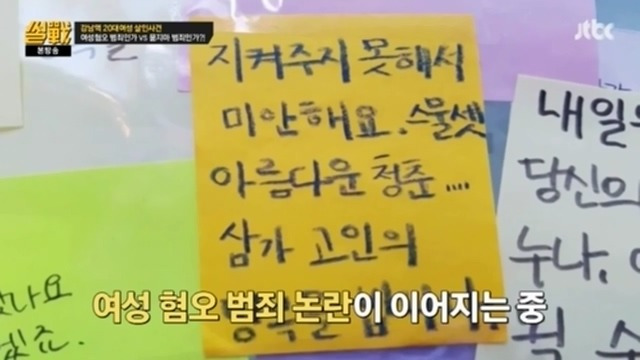 썰戰
본방송
강남역 20대여성 살인사건
여성혐오 범죄인가 vs 묻지마 범죄인가?!
jtbc
지켜주지 못해서
미안해요. 스물셋
아름다운 청춘....
삼가 고인의
당신의
누나,
여성 혐오 범죄 논란이 이어지는 중